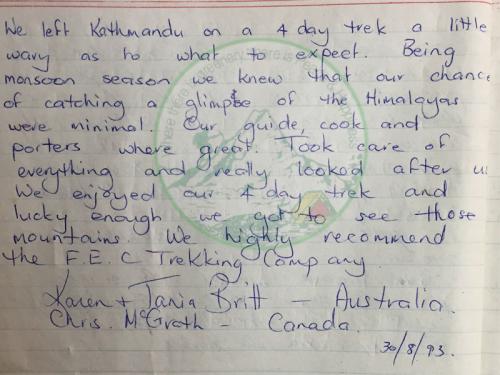 We left Kathmandu on a 4 day trek a little
wary as to what to expect. Being
monsoon season we knew that our chance
of catching a glimpse of the Himalayas
were minimal. Our guide, cook and
porters where great. Took care of
everything and really looked after us
We enjoyed our 4 day trek and
lucky enough we got to see those
mountains. We highly recommend
the F.E.C Trekking Company.
Karen + Tania Britt - Australia.
Chris. McGrath - Canada.
30/8/93.